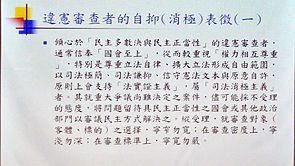 違憲審查者的自抑(消極)表徵(一)
傾心於「民主多數決與民主正當性」的違憲審查者，
通常信奉「國會至上」，從而較重視「權力相互尊重
」，特別是尊重立法自律，擴大立法形成自由範圍，
以司法極簡，司法謙抑，信守憲法文本與原意自許，
原則上會支持「法實證主義」，屬「司法消極主義」
者。其就重大爭訟尚難決定之案件，儘可能採不受理
的態度，將問題留待具民主正當性之國會或其他政治
部門以審議民主方式解決之。縱受理，就審查對象(
客體、標的)之選擇，寧窄勿寬；在審查密度上，寧
淺勿深；在審查標準上，寧寬勿嚴。